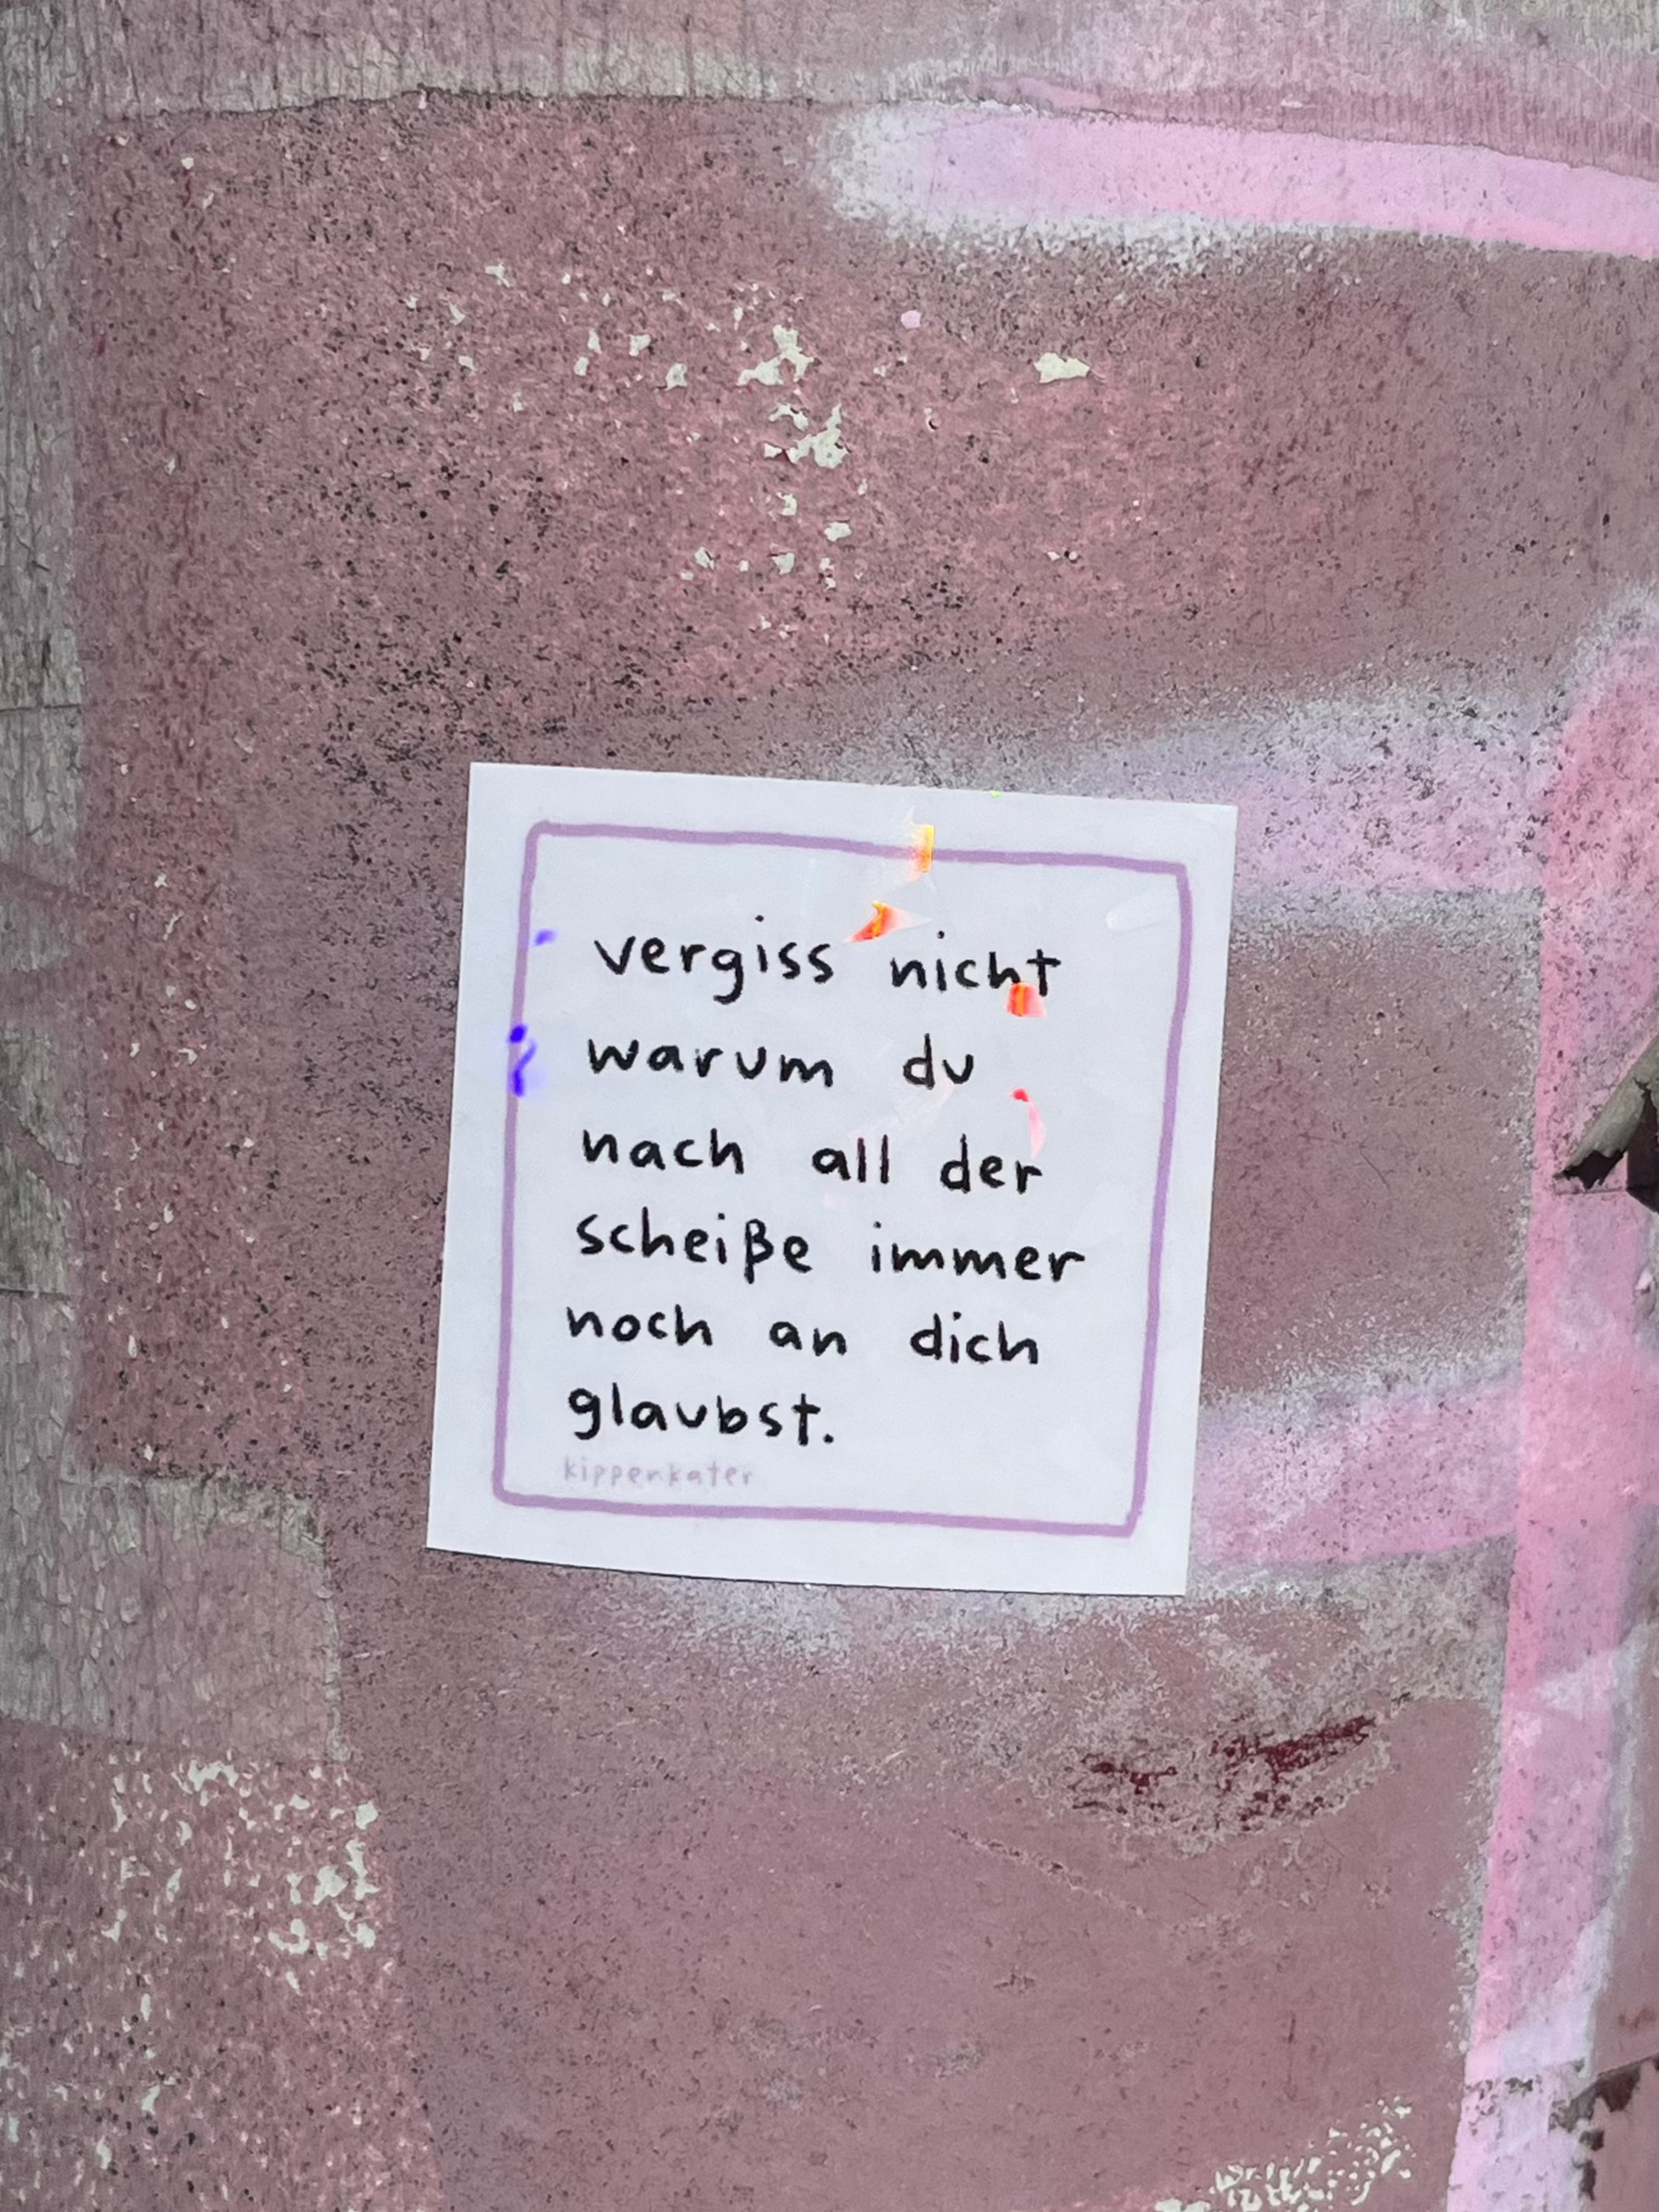 vergiss nicht
warum du
nach all der
scheiße immer
noch an dich
glaubst.
kippenkater